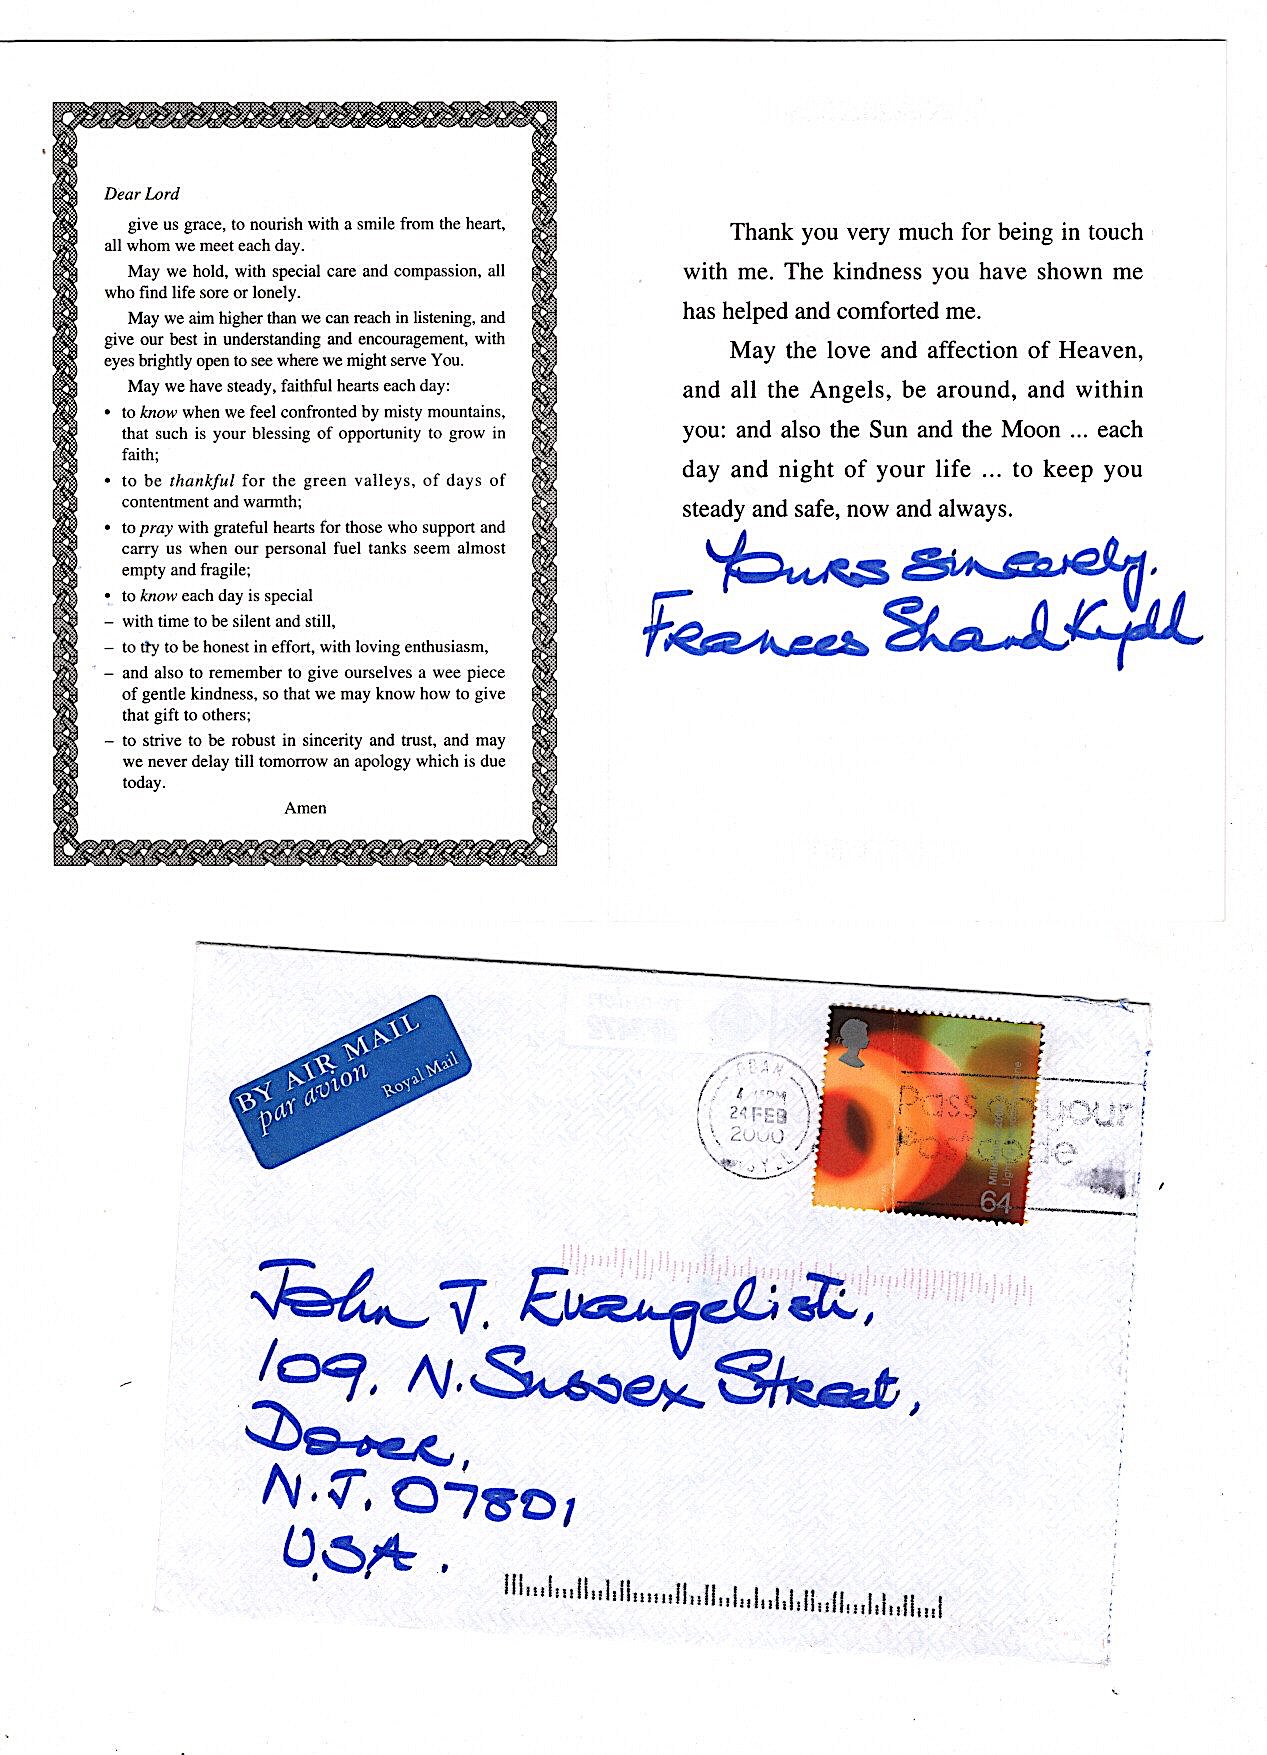 Dear Lord
give us grace, to nourish with a smile from the heart,
all whom we meet each day.
May we hold, with special care and compassion, all
who find life sore or lonely.
May we aim higher than we can reach in listening, and
give our best in understanding and encouragement, with
eyes brightly open to see where we might serve You.
May we have steady, faithful hearts each day:
• to know when we feel confronted by misty mountains,
that such is your blessing of opportunity to grow in
faith;
• to be thankful for the green valleys, of days of
contentment and warmth;
• to pray with grateful hearts for those who support and
carry us when our personal fuel tanks seem almost
empty and fragile;
• to know each day is special
– with time to be silent and still,
– to try to be honest in effort, with loving enthusiasm,
– and also to remember to give ourselves a wee piece
of gentle kindness, so that we may know how to give
that gift to others;
– to strive to be robust in sincerity and trust, and may
we never delay till tomorrow an apology which is due
today.
Amen
Thank you very much for being in touch
with me. The kindness you have shown me
has helped and comforted me.
May the love and affection of Heaven,
and all the Angels, be around, and within
you: and also the Sun and the Moon ... each
day and night of your life ... to keep you
steady and safe, now and always.
Yours sincerely.
Frances Shand Kydd
BY AIR MAIL
par avion
Royal Mail
OBAN
24 FEB
2000
Pass on your
Postcode
64
John J. Evangelisti,
109, N. Sussex Street,
Dover,
N.J. 07801
U.S.A.